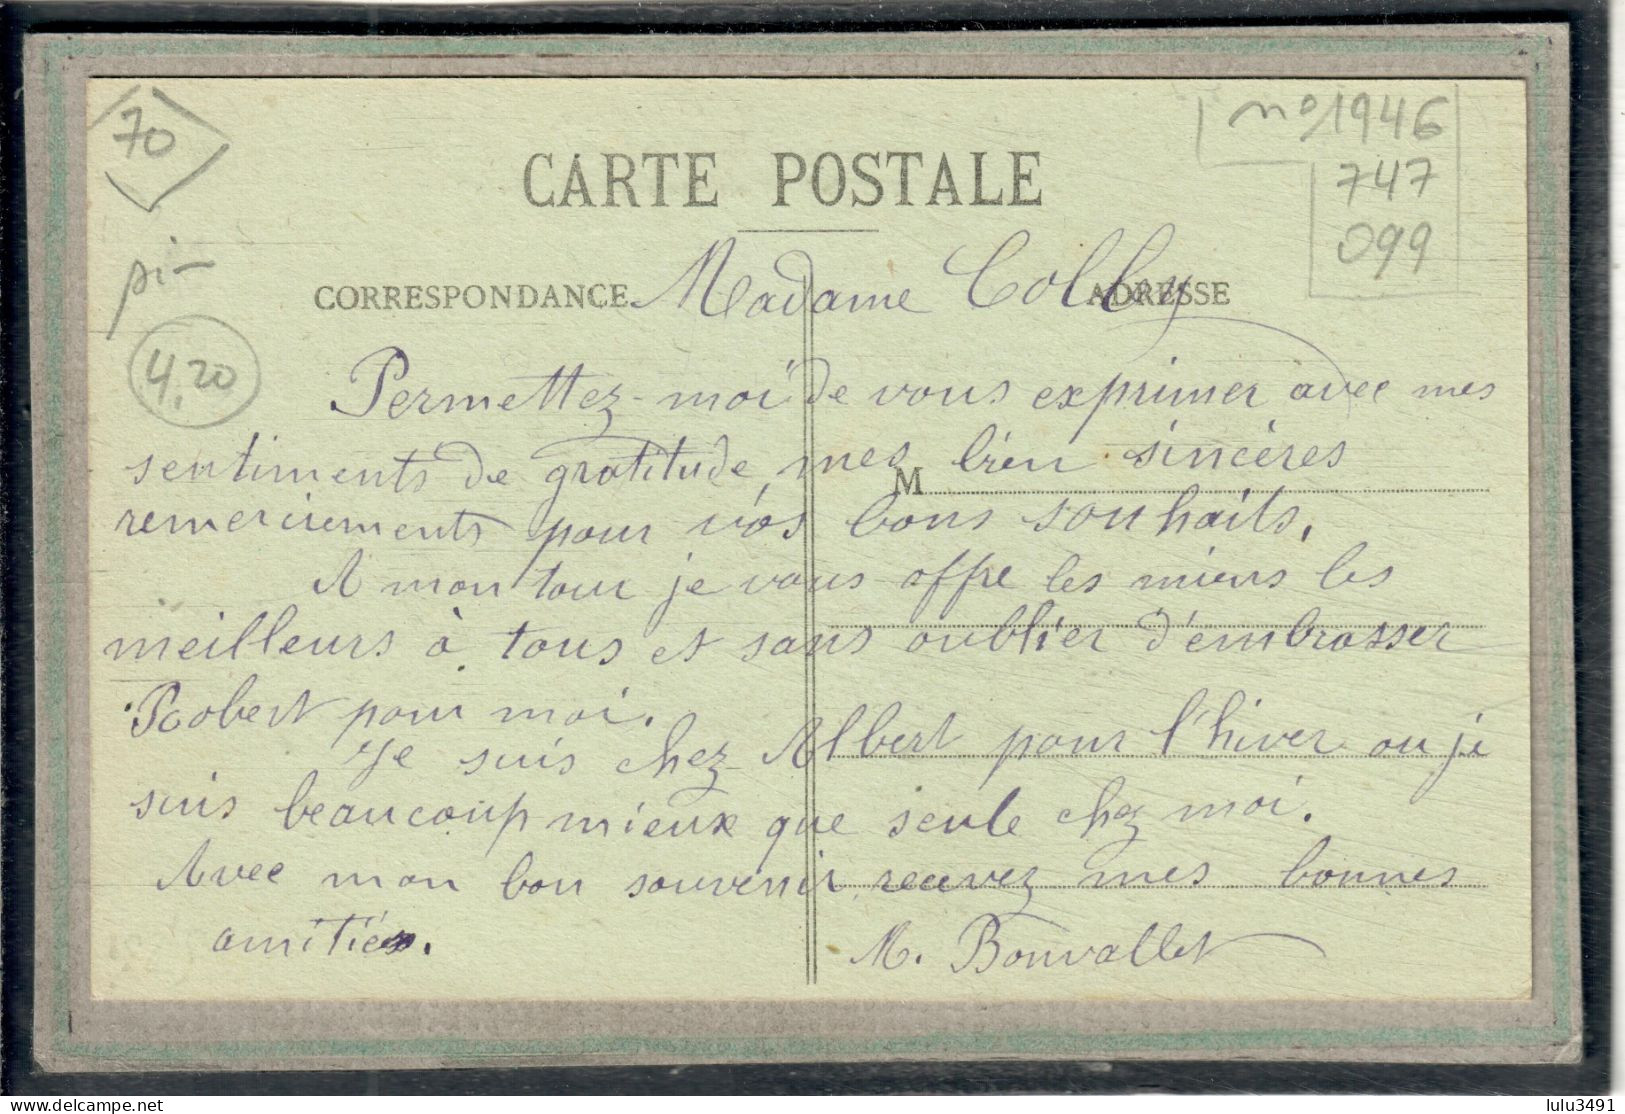 70
no 1946
747
099
CARTE POSTALE
pi-
CORRESPONDANCE
ADRESSE
4,20
Madame Colley
Permettez-moi de vous exprimer avec mes
sentiments de gratitude, mes bien sincères
M
remerciements pour vos bons souhaits.
A mon tour je vous offre les miens les
meilleurs à tous et sans oublier d'embrasser
Robert pour moi.
Je suis chez Albert pour l'hiver ou je
suis beaucoup mieux que seule chez moi.
Avec mon bon souvenir recevez mes bonnes
amitiés.
M. Bonvallet
delcampe.net
lulu3491